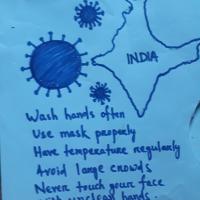 INDIA
Wash hands often
Use mask properly
Have temperature regularly
Avoid large crowds
Never touch your face
with unclean hands.